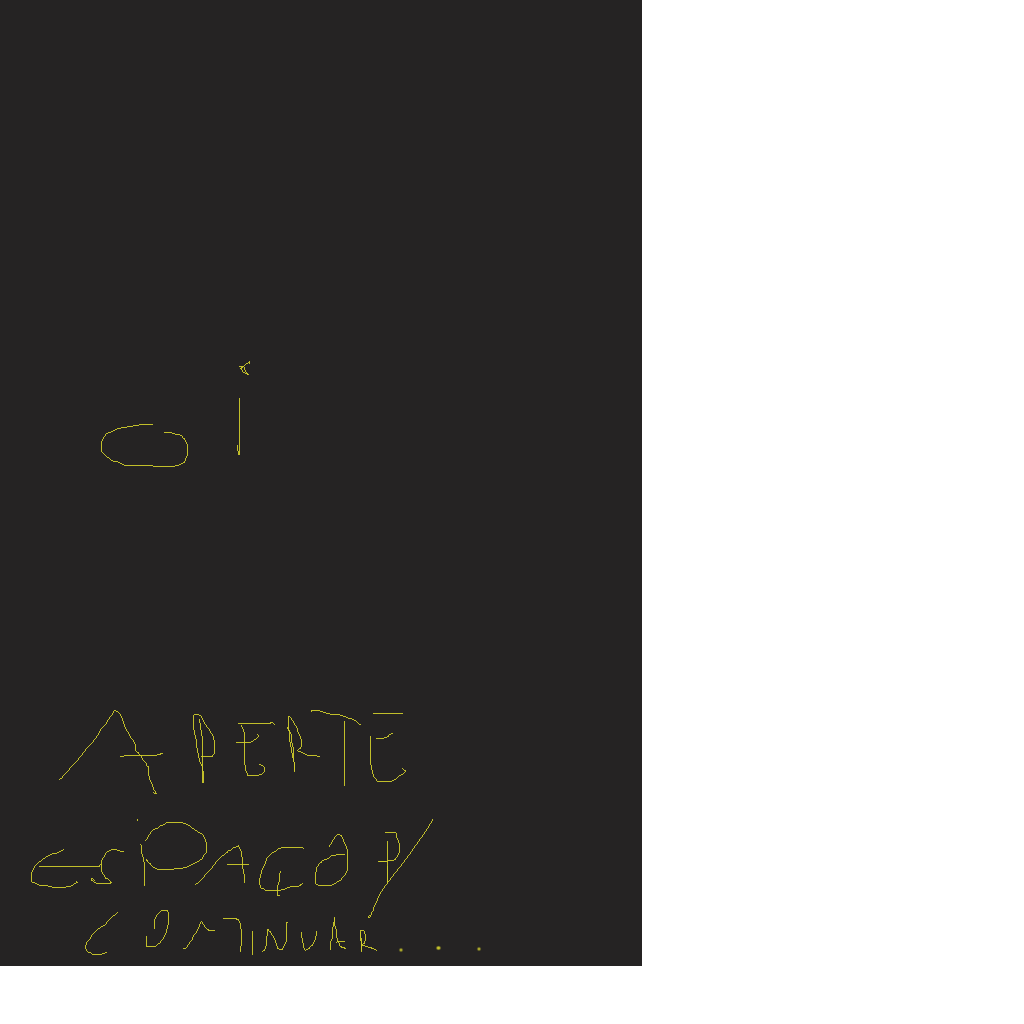 oi
APERTE
ESPAÇO P/
CONTINUAR...